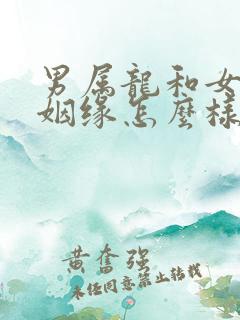 男属龍和女
姻缘怎麼樣
黄奮强
未经同意禁止转载